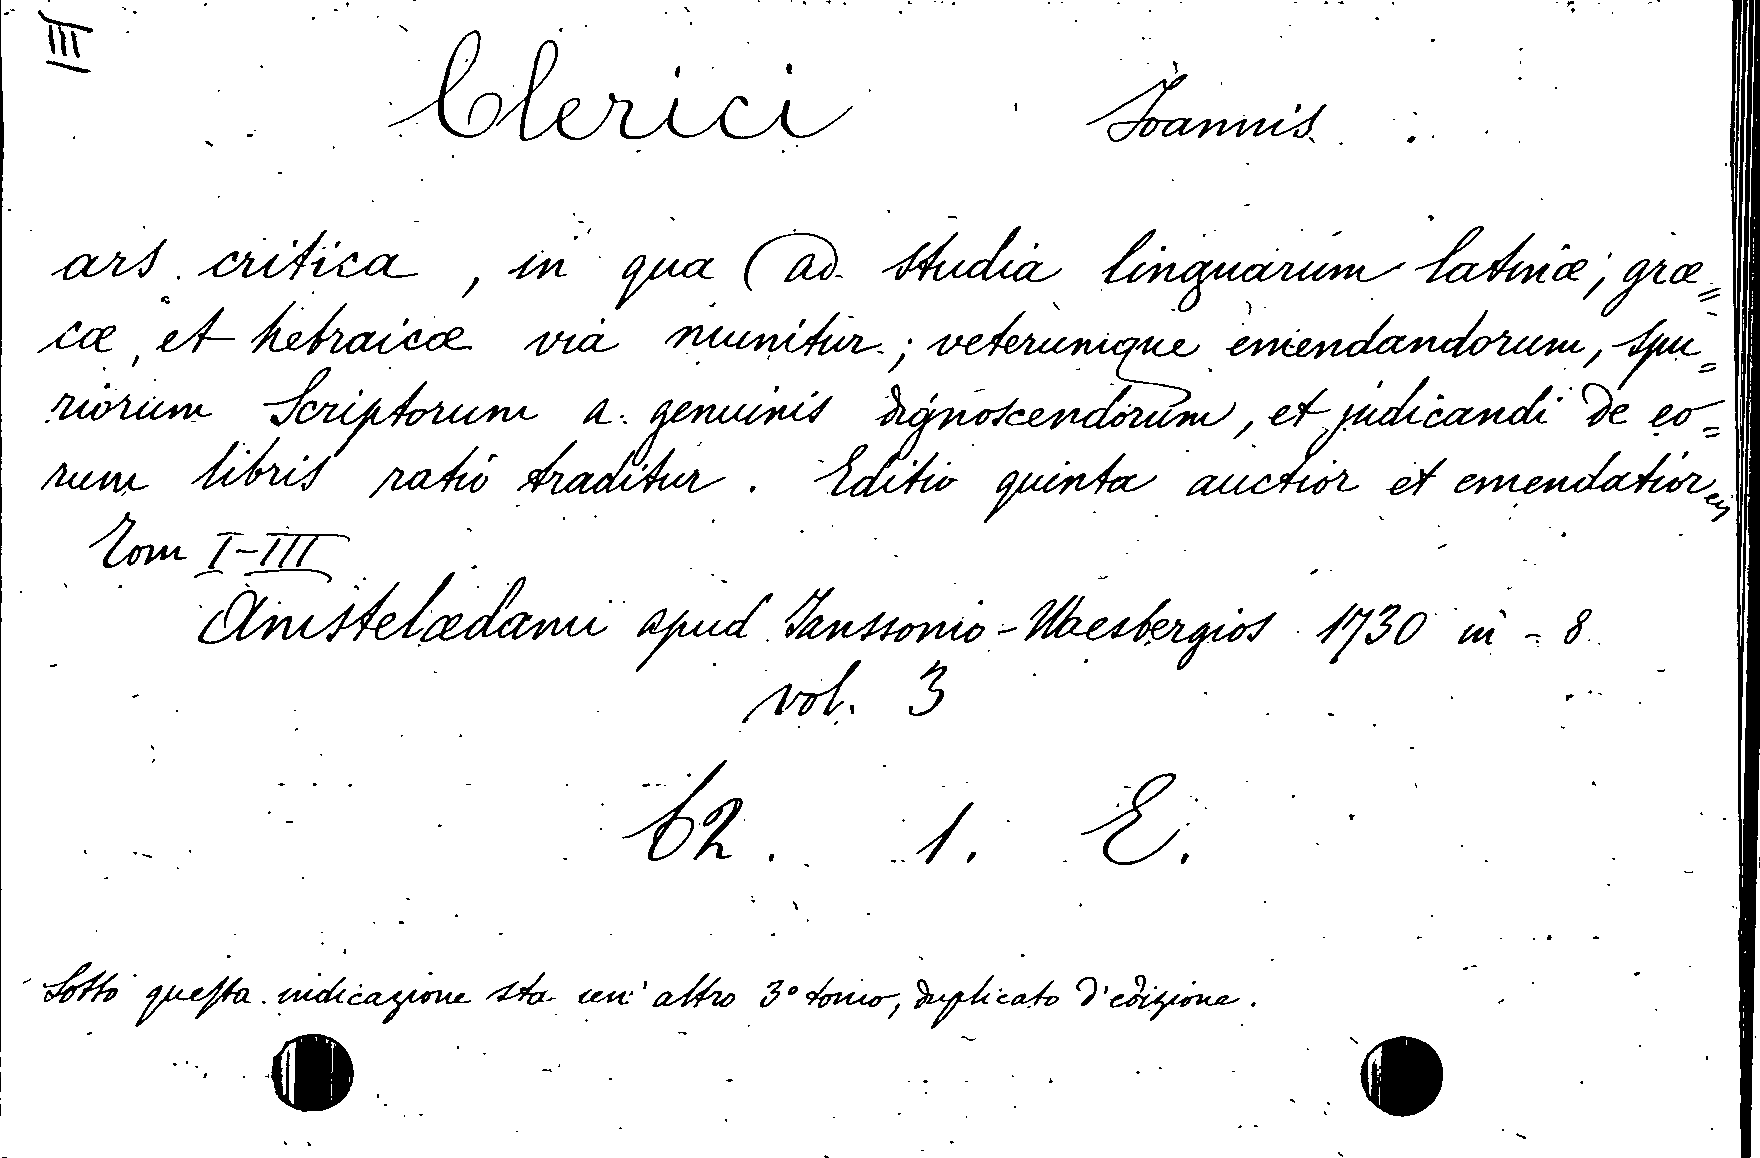 III
Clerici Ioannis
ars critica, in qua (ad studia linguarum latinæ; græ=
cæ, et hebraicæ via munitur; veterumque emendandorum, spu=
riorum Scriptorum a genuinis dignoscendorum, et judicandi de eo=
rum libris ratio traditur. Editio quinta auctior et emendatior
Tom I-III
Amstelædami apud Janssonio-Waesbergios 1730 in-8
vol. 3
62. 1. E.
Sotto questa indicazione sta un' altro 3° tomo, duplicato d'edizione.